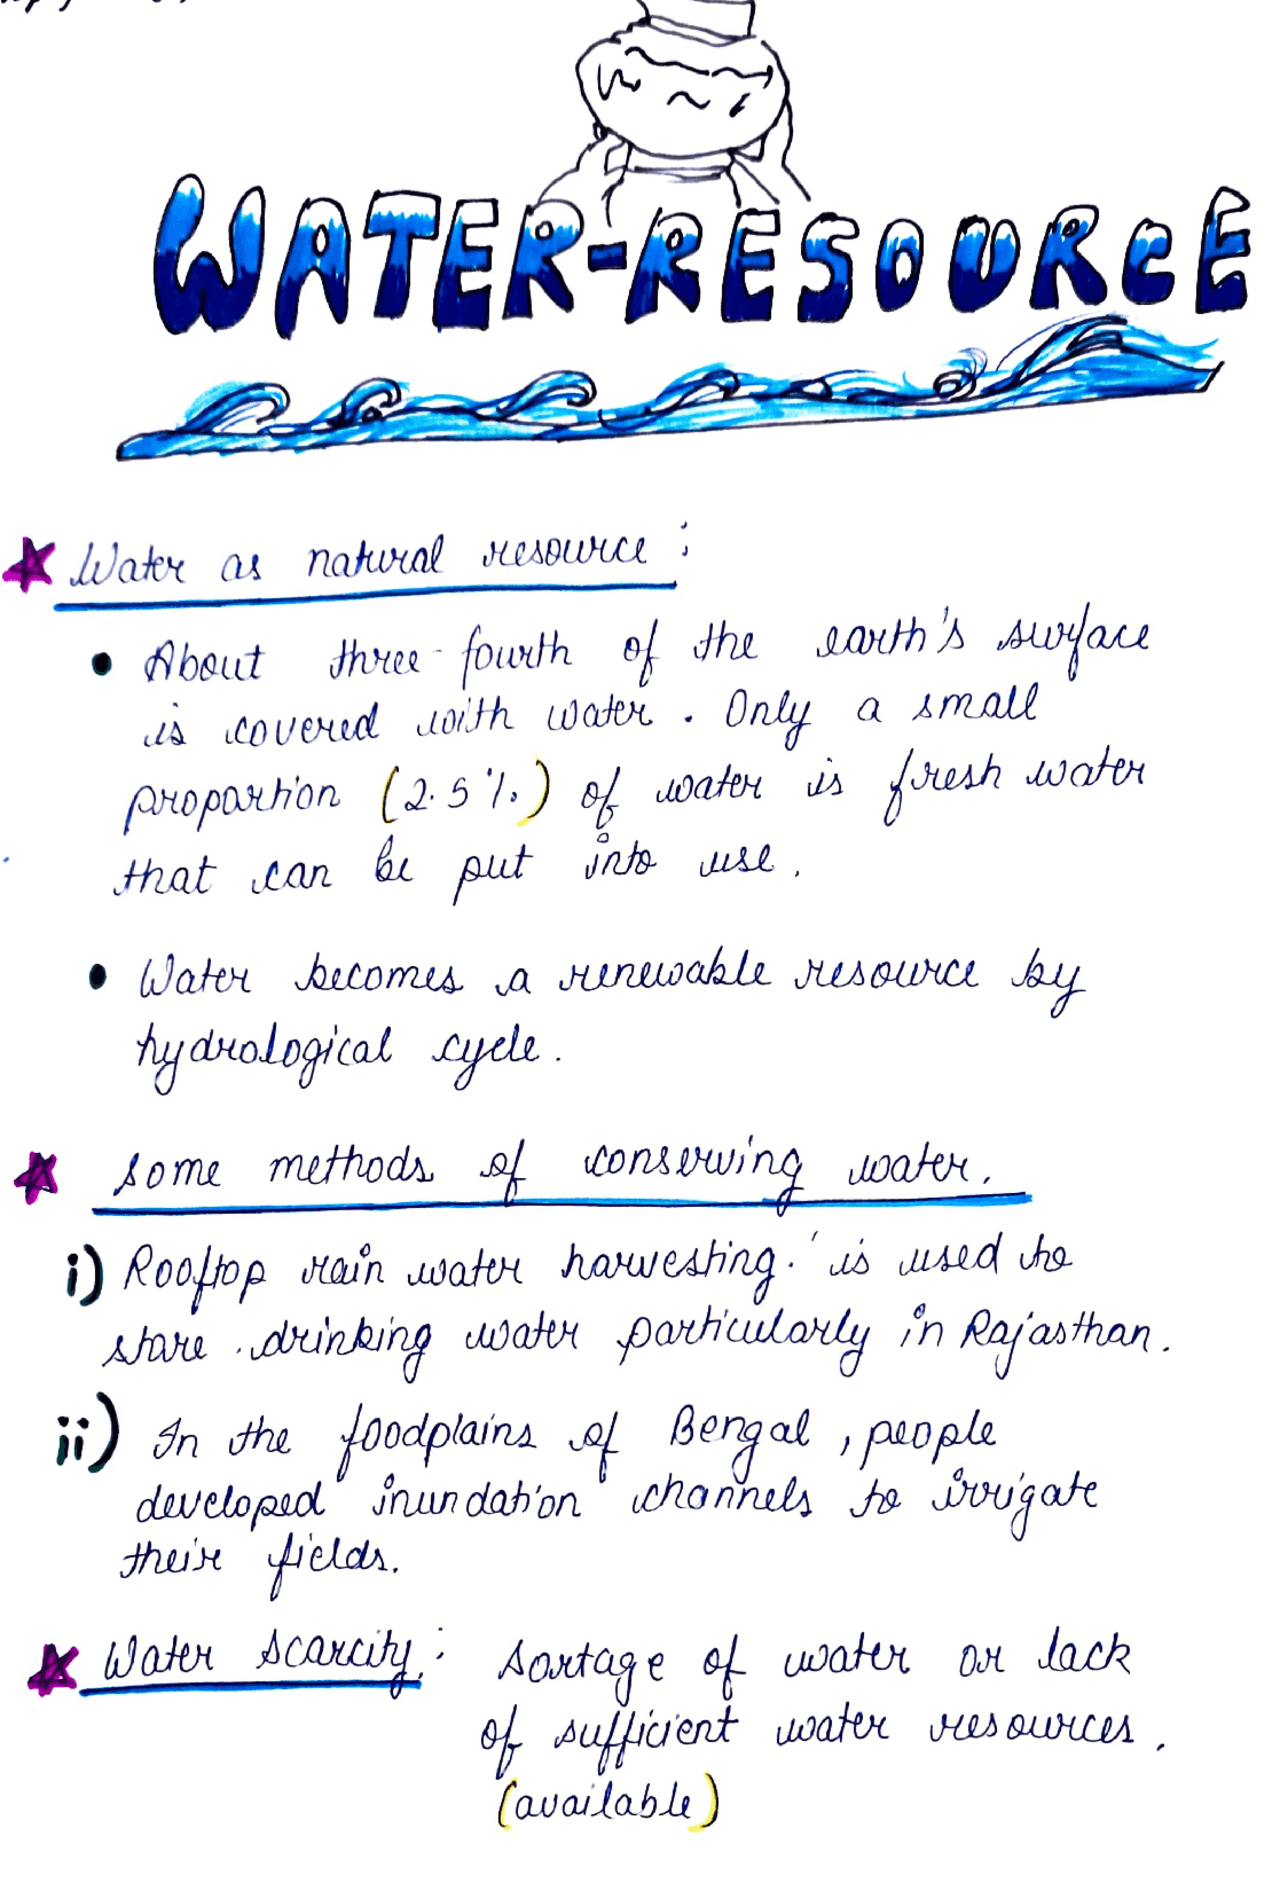 WATER-RESOURCE
Water as natural resource :
• About three-fourth of the earth's surface
is covered with water. Only a small
proportion (2.5%) of water is fresh water
that can be put into use.
• Water becomes a renewable resource by
hydrological cycle.
some methods of conserving water.
i) Rooftop rain water harvesting. is used to
store drinking water particularly in Rajasthan.
ii) In the foodplains of Bengal, people
developed inundation channels to irrigate
their fields.
Water scarcity : Sortage of water or lack
of sufficient water resources.
(available)